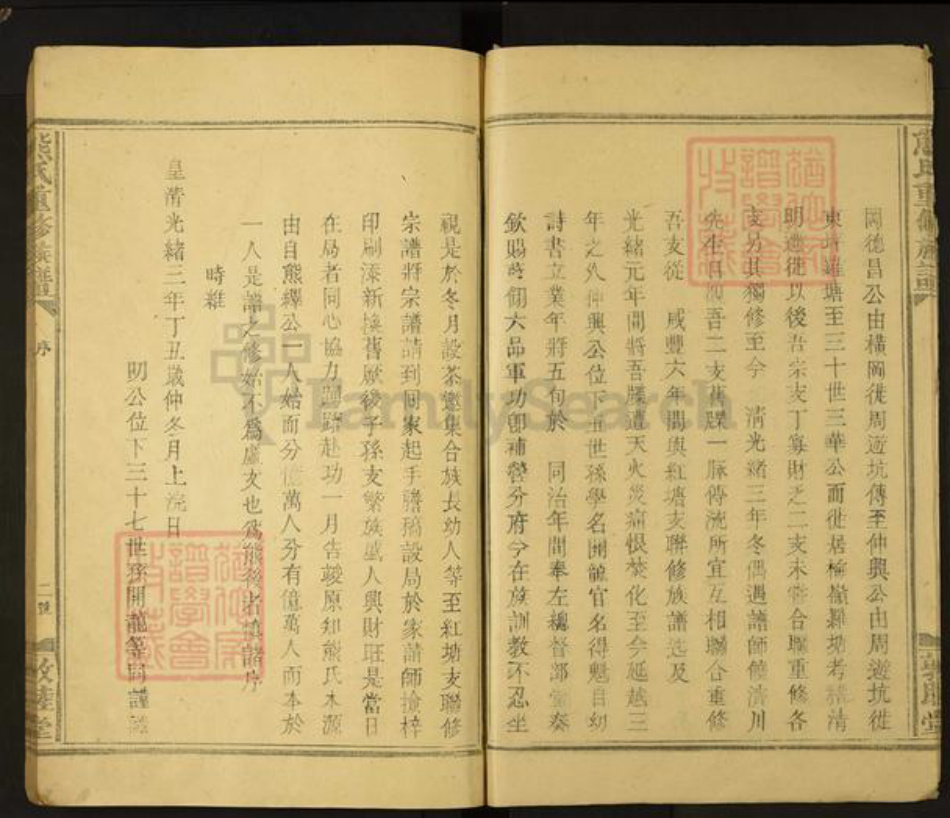 岡德昌公由橫岡徙周遊坑傳至仲興公由周遊坑徙
東 塘至三十世三華公而徙居 塘考 清
明 徙以後吾宗支丁寡財乏二支未 合聯重修各
支另其獨修至今 清光緒三年冬偶遇譜師 清川
先生 吾二支舊牒一脈傳流所宜互相聯合重修
吾支從 咸豐六年間與紅塘支聯修族譜 及
光緒元年間將吾牒遭天火災痛恨焚化至今延越三
年之久仲興公位下 世孫學名開龍官名得魁自幼
詩書立業年將五旬於 同治年間奉左 督部堂奏
欽賜 翎六品軍功卽補營分府今在族訓教不忍坐
視是於冬月設茶邀集合族長幼人等至紅塘支聯修
宗譜將宗譜請到回家起手謄稿設局於家請師 梓
印刷漆新換舊厥後子孫支繁族盛人興財旺是當日
在局者同心協力 赴功一月告竣原知熊氏木源
由自熊繹公一人始而分億萬人分有億萬人而本於
一人是譜之修始不為虛文也為熊後者慎諸序
時維
皇清光緒三年丁丑歲仲冬月上浣日
明公位下三十七世孫開龍等 謹
熊氏重修族譜
序
二號
敦睦堂